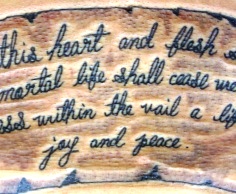 this heart and flesh s
mortal life shall cease we
ess within the vail a lif
joy and peace.